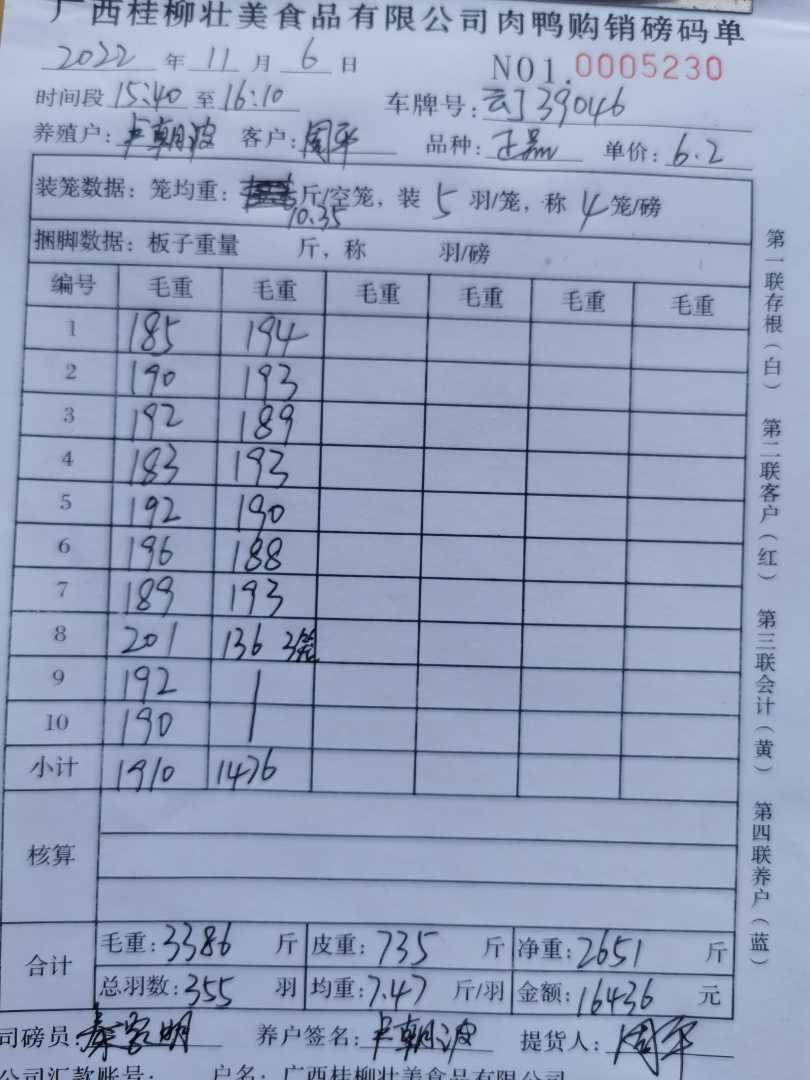 广西桂柳壮美食品有限公司肉鸭购销磅码单
2022 年 11 月 6 日 NO1.0005230
时间段 15:40 至 16:10 车牌号: 云J39046
养殖户: 卢朝波 客户: 周平 品种: 正品 单价: 6.2
装笼数据: 笼均重: 斤/空笼, 装 5 羽/笼, 称 4 笼/磅
10.35
捆脚数据: 板子重量 斤, 称 羽/磅
编号 毛重 毛重 毛重 毛重 毛重 毛重
1 185 194
2 190 193
3 192 189
4 183 193
5 192 190
6 196 188
7 189 193
8 201 136 3笼
9 192 /
10 190 /
小计 1910 1476
核算
合计
毛重: 3386 斤 皮重: 735 斤 净重: 2651 斤
总羽数: 355 羽 均重: 7.47 斤/羽 金额: 16436 元
司磅员: 秦家明 养户签名: 卢朝波 提货人: 周平
公司汇款账号: 户名: 广西桂柳壮美食品有限公司
第一联存根(白) 第二联客户(红) 第三联会计(黄) 第四联养户(蓝)